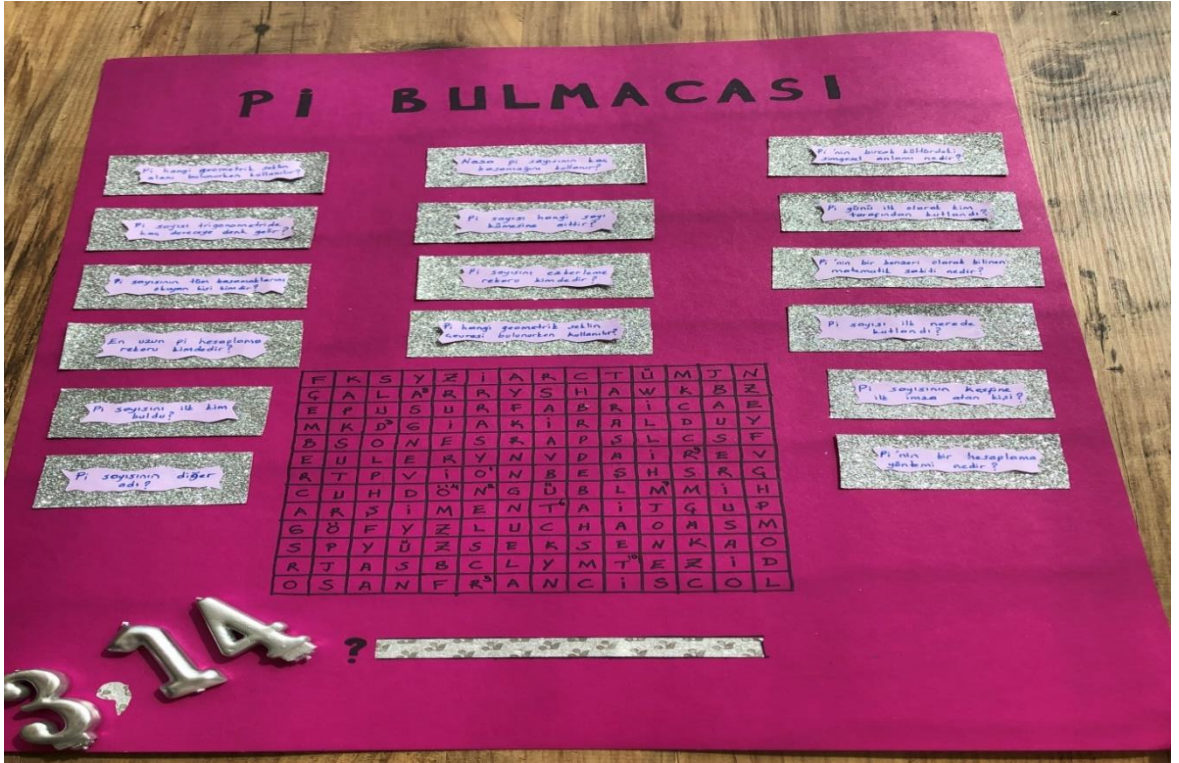 Pİ BULMACASI
Pi hangi geometrik şeklin
alanı bulunurken kullanılır?
Pi sayısı trigonometride
kaç dereceye denk gelir?
Pi sayısının tüm basamaklarını
okuyan kişi kimdir?
En uzun pi hesaplama
rekoru kimdedir?
Pi sayısını ilk kim
buldu?
Pi sayısının diğer
adı?
Nasa pi sayısının kaç
basamağını kullanır?
Pi sayısı hangi sayı
kümesine aittir?
Pi sayısını ezberleme
rekoru kimdedir?
Pi hangi geometrik şeklin
çevresi bulunurken kullanılır?
Pi'nin birçok kültürdeki
simgesel anlamı nedir?
Pi günü ilk olarak kim
tarafından kutlandı?
Pi'nin bir benzeri olarak bilinen
matematik sabiti nedir?
Pi sayısı ilk nerede
kutlandı?
Pi sayısının keşfine
ilk imza atan kişi?
Pi'nin bir hesaplama
yöntemi nedir?
F K S Y Z İ A R C T Ü M J N
Ç A L A R R Y Ş H A W K B Z
E P U S U R F A B R İ C A E
M K D G İ A K İ R A L D U Y
B S O N E S R A P S L C S F
E U L E R Y N V D A İ R E V
R T P V İ O N B E Ş H S R G
C U H D Ö N G Ü B L M M İ H
A R Ş İ M E N T A İ J Ç U P
G Ö F Y Z L U C H A O A S M
S P Y Ü Z S E K S E N K A O
R J A S B C L Y M T E Z İ D
O S A N F R A N C İ S C O L
?
3,14